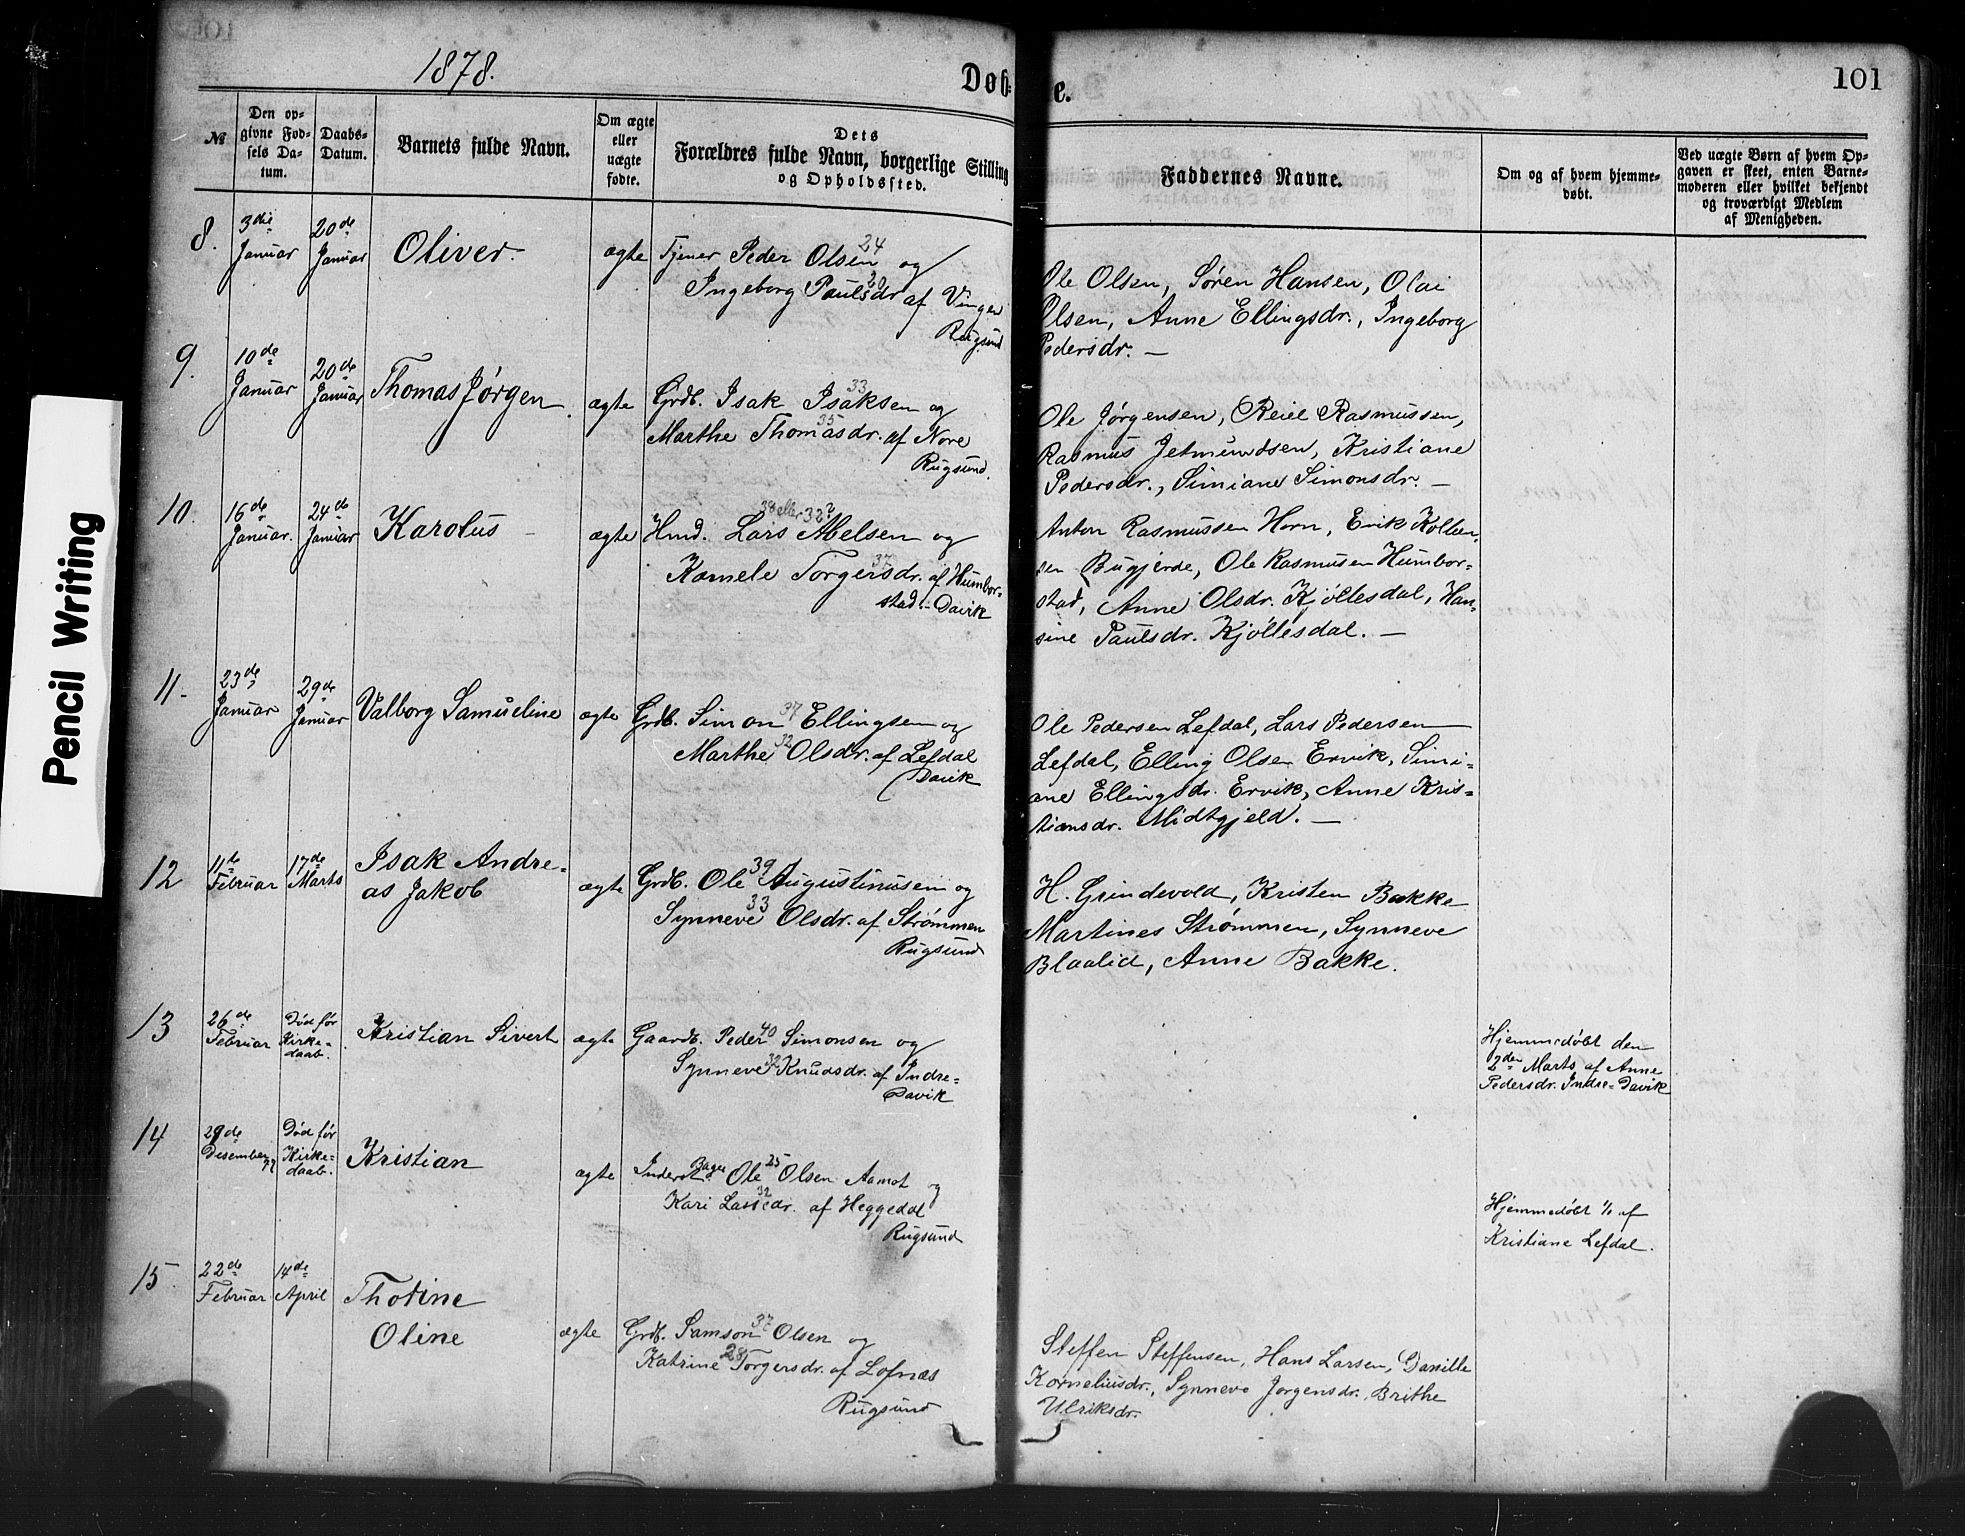 1878.
Døb-
e.
101
№
Den op-
givne Fød-
sels Da-
tum.
Daabs-
Datum.
Barnets fulde Navn.
Om ægte
eller
uægte
fødte.
Dets
Forældres fulde Navn, borgerlige Stilling
og Opholdssted.
Faddernes Navne.
Om og af hvem hjemme-
døbt.
Ved uægte Børn af hvem Op-
gaven er skeet, enten Barne-
moderen eller hvilket bekjendt
og troværdigt Medlem
af Menigheden.
8.
3die
Januar
20de
Januar
Oliver.
ægte
Tjener Peder Olsen 24 og
Ingeborg Paulsdr 20 af Vingen
Rugsund
Ole Olsen, Søren Hansen, Olai
Olsen, Anne Ellingsdr., Ingeborg
Pedersdr. —
9.
10de
Januar
20de
Januar
Thomas Jørgen.
ægte
Grdb. Isak Isaksen 33 og
Marthe Thomasdr. 35 af Nore
Rugsund.
Ole Jørgensen, Reiel Rasmussen,
Rasmus Jetmundsen, Kristiane
Pedersdr., Simiane Simonsdr. —
10.
16de
Januar.
24de
Januar
Karolus
ægte
38 eller 32?
Hmd. Lars Abelsen og
Kornele Torgersdr. 37 af Humbor-
stad - Davik
Anton Rasmussen Horn, Erik Kolbein-
sen Bugjerde, Ole Rasmusen Humbor-
stad, Anne Olsdr. Kjöllesdal, Han-
sine Paulsdr. Kjöllesdal. —
11.
23de
Januar
29de
Januar
Valborg Samueline
ægte
Grdb. Simon 37 Ellingsen og
Marthe 32 Olsdr. af Lefdal
Davik
Ole Pedersen Lefdal, Lars Pedersen
Lefdal, Elling Olsen Ervik, Simi-
ane Ellingsdr. Ervik, Anne Kris-
tiansdr. Midtgjeld. —
12
11te
Februar
17de
Marts
Isak Andre-
as Jakob
ægte
Grdb. Ole 39 Augustinusen og
Synneve 33 Olsdr. af Strømmen
Rugsund
H. Grindevold, Kristen Bakke
Martines Strømmen, Synneve
Blaalid, Anne Bakke.
13
26de
Februar
Død før
Kirke-
daab.
Kristian Sivert
ægte
Gaardb. Peder 40 Simonsen og
Synneve 32 Knudsdr. af Indre-
Davik
Hjemmedøbt den
2den Marts af Anne
Pedersdr. Indre-Davik
14
29de
Desember 77
Død før
Kirke-
daab.
Kristian
ægte
Inderst Bager Ole 25 Olsen Aamot og
Kari Lassedr. 32 af Heggedal
Rugsund
Hjemmedøbt 1/1 af
Kristiane Lefdal.
15.
22de
Februar
14de
April
Thotine
Oline
ægte
Grdb. Samson 37 Olsen og
Katrine 28 Torgersdr. af Lofnæs
Rugsund
Steffen Steffensen, Hans Larsen, Danille
Korneliusdr., Synneve Jørgensdr. Brithe
Ulriksdr.
Pencil Writing